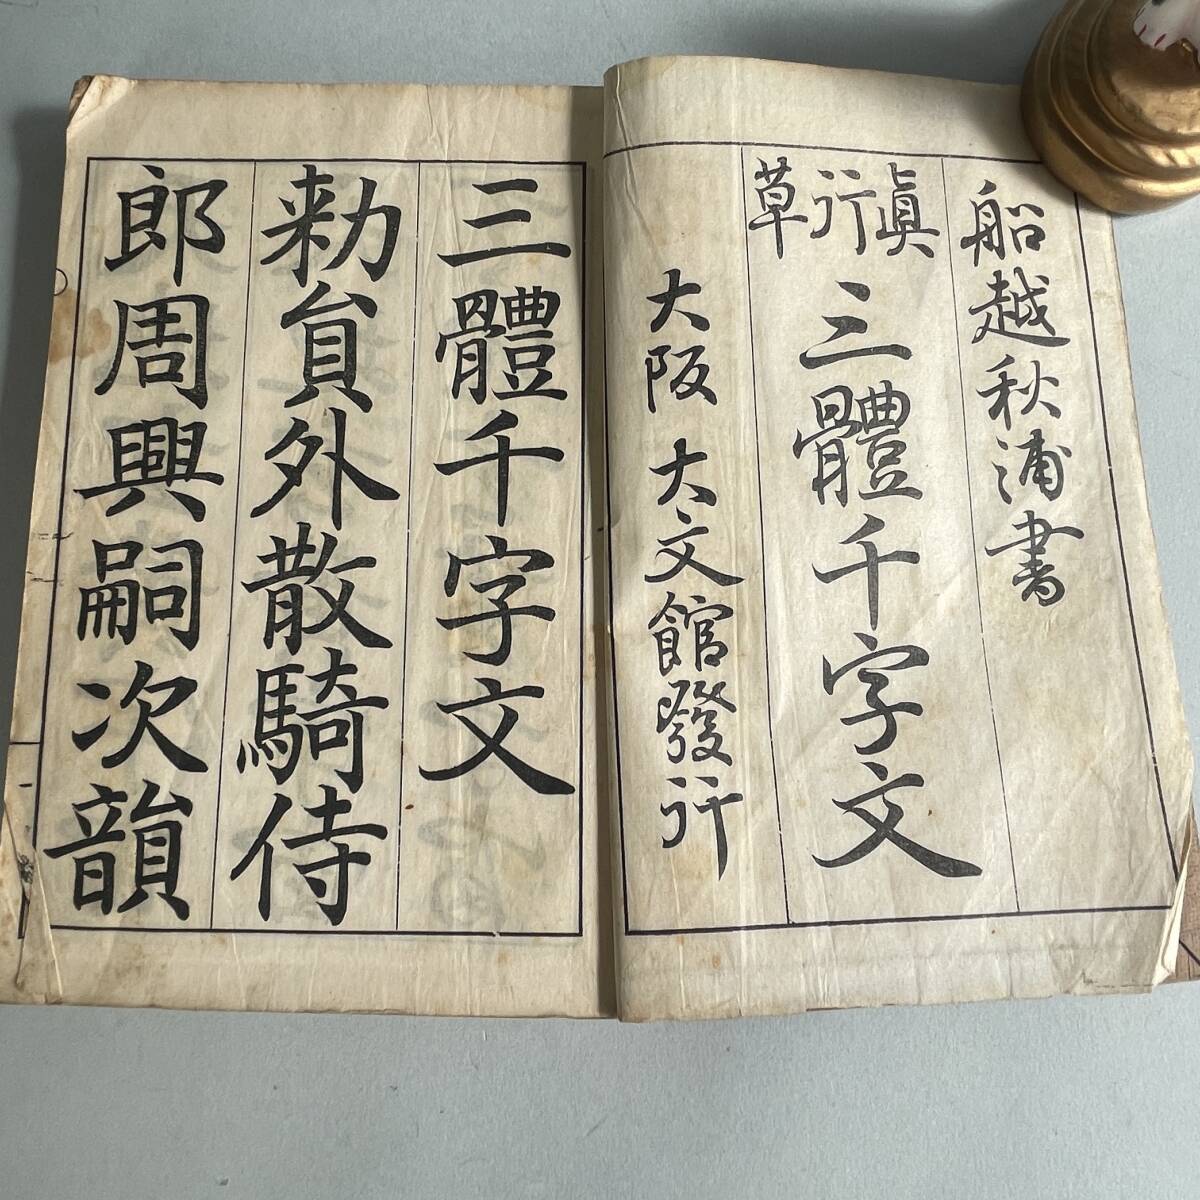 船越秋浦書
眞行草
三體千字文
大阪 大文館發行
三體千字文
勑貟外散騎侍
郎周興嗣次韻